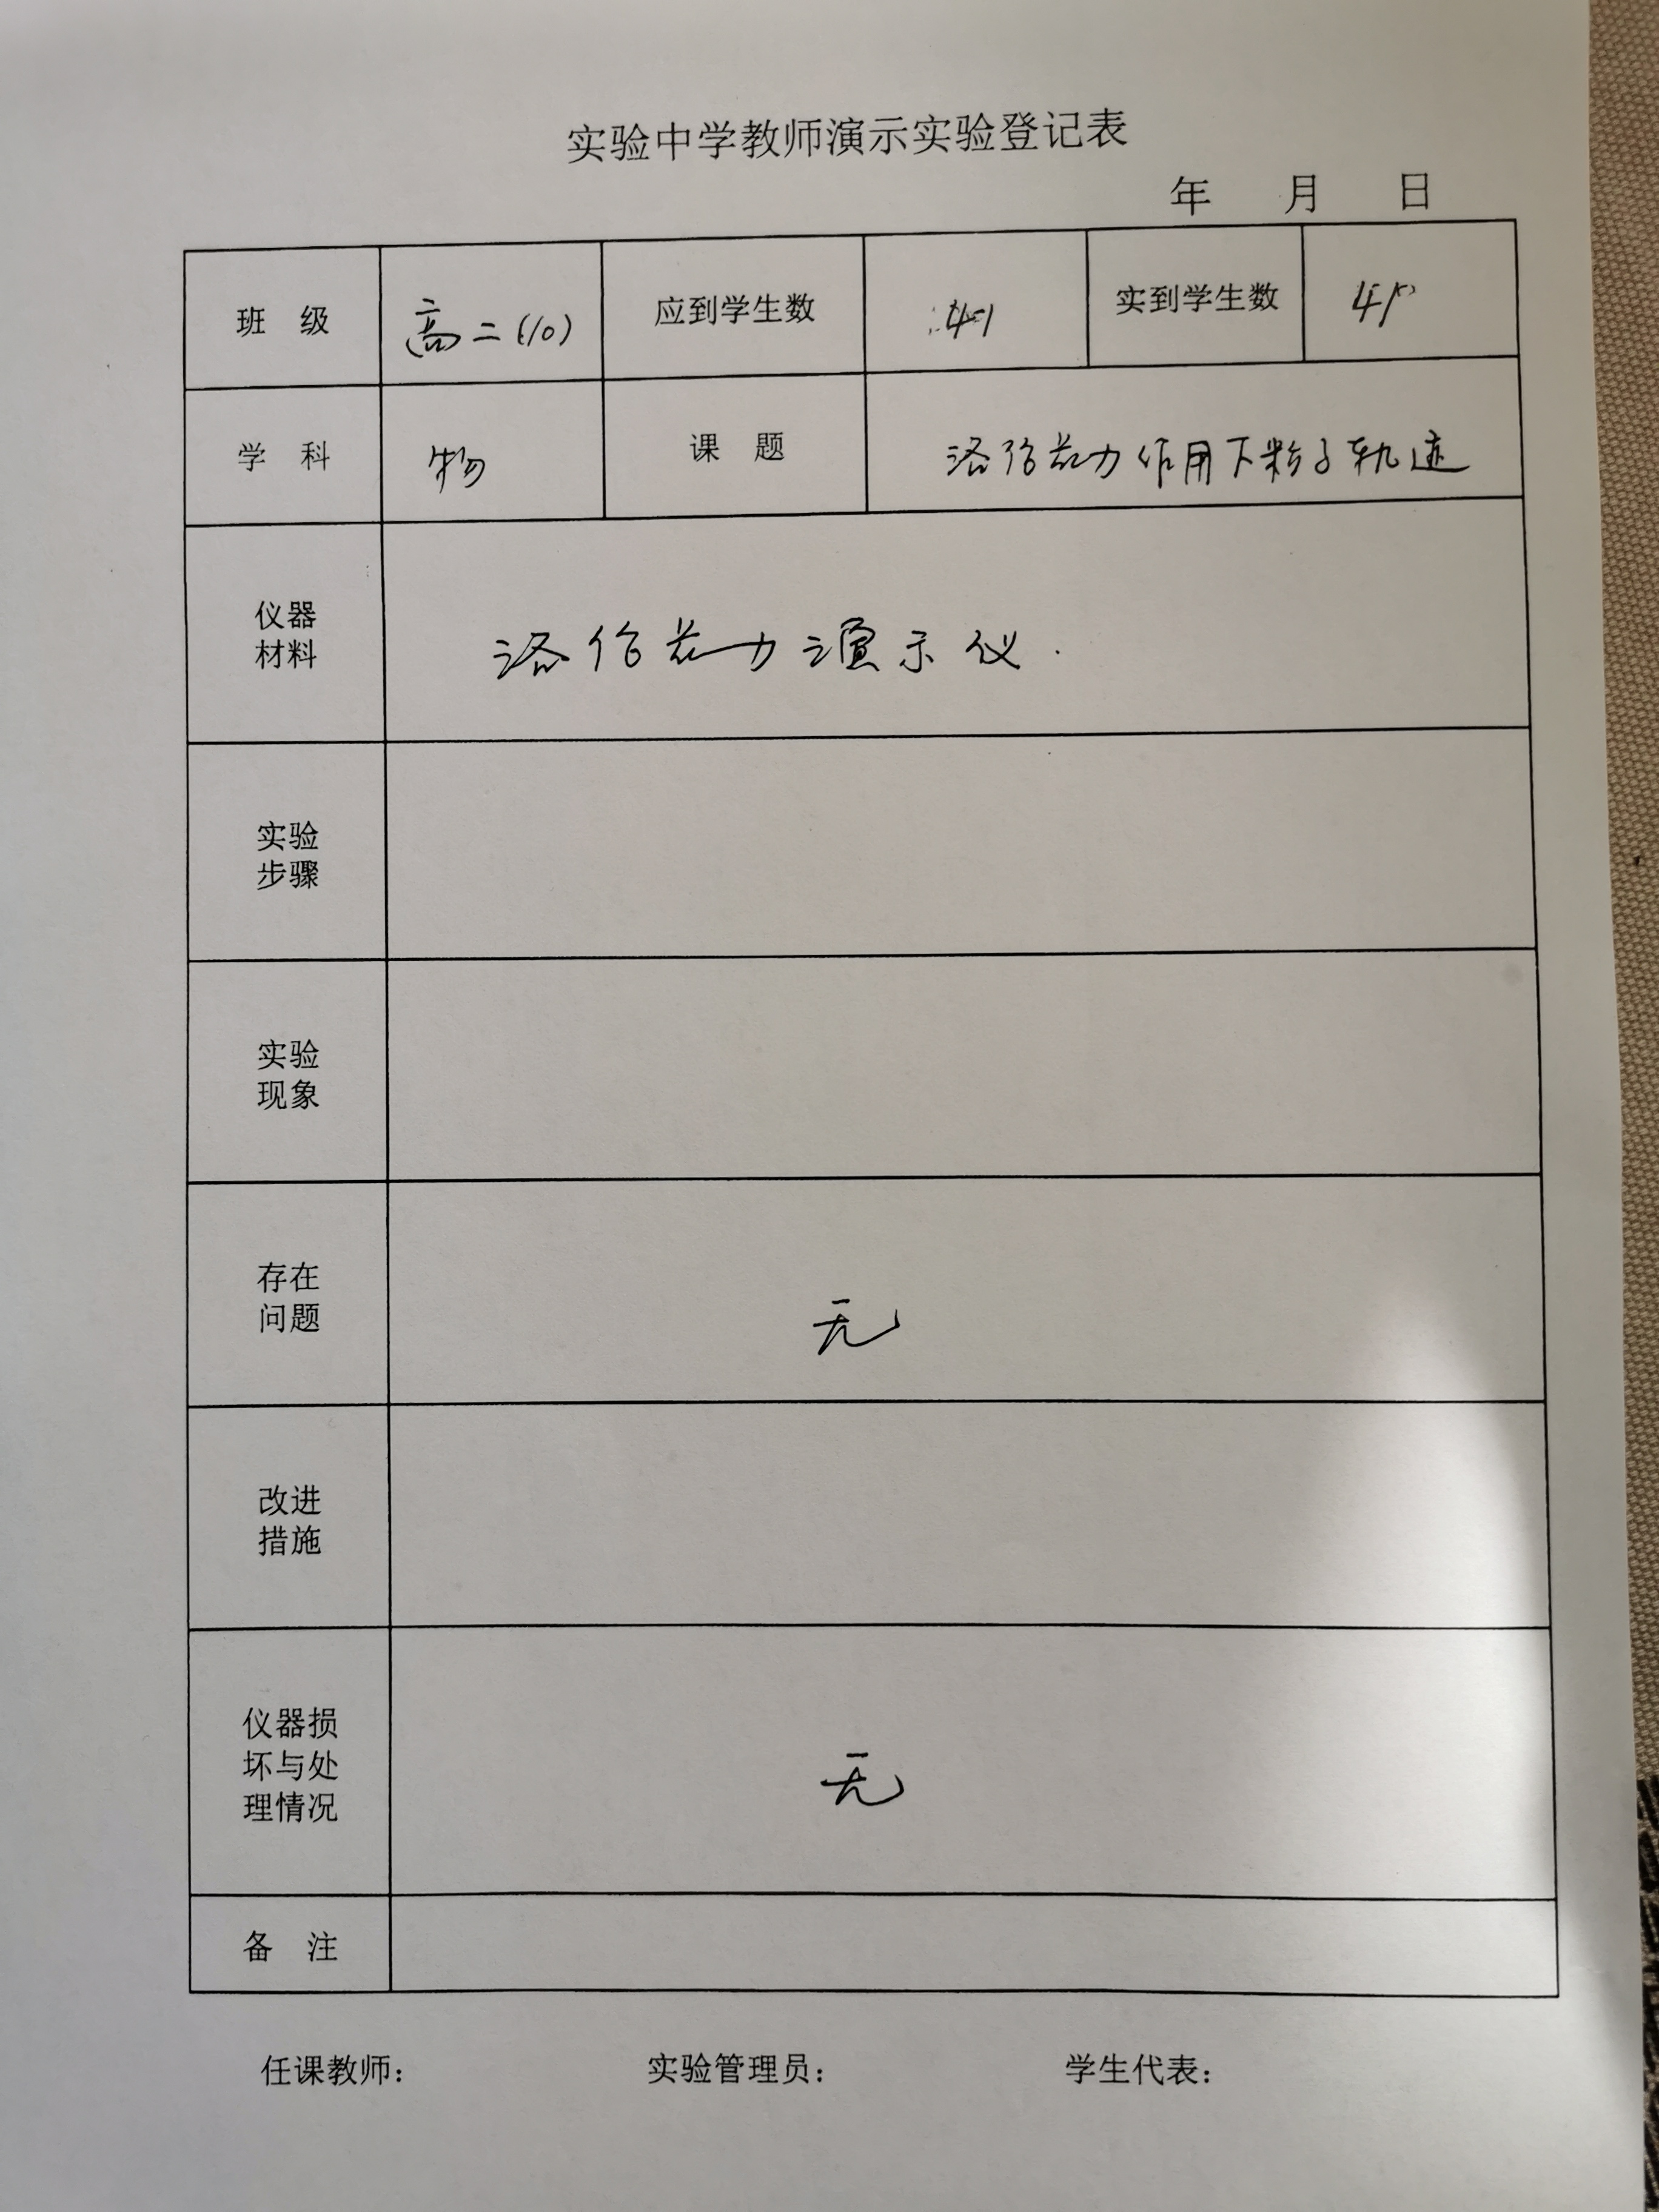 实验中学教师演示实验登记表
年 月 日
班 级 高二(10) 应到学生数 41 实到学生数 41
学 科 物 课 题 洛伦兹力作用下粒子轨迹
仪器
材料
洛伦兹力演示仪.
实验
步骤
实验
现象
存在
问题
无
改进
措施
仪器损
坏与处
理情况
无
备 注
任课教师: 实验管理员: 学生代表: